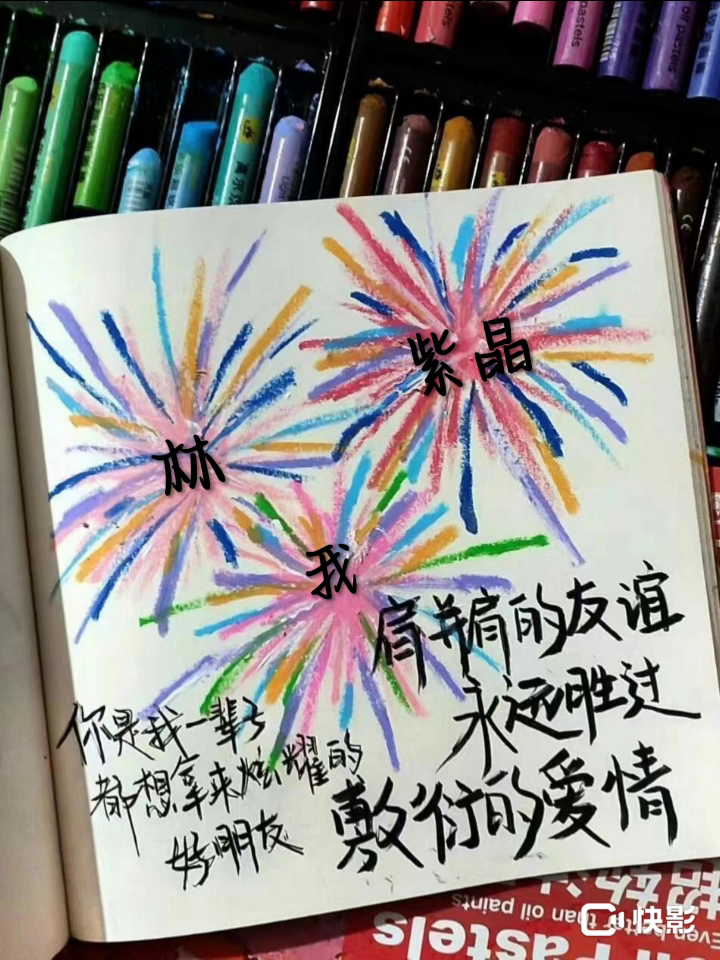 pastels
oil pastels
紫晶
林
我
肩并肩的友谊
永远胜过
敷衍的爱情
你是我一辈子
都想拿来炫耀的
好朋友
快影
Even better than oil paints
Oil Pastels